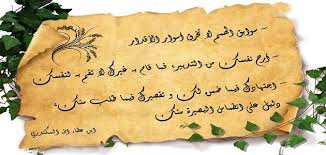 - سوابق الهمم لا تخرق أسوار الأقدار
- أرح نفسك من التدبير، فما قام به غيرك لا تقم به لنفسك
- اجتهادك فيما ضمن لك و تقصيرك فيما طلب منك،
دليل على انطماس البصيرة منك
ابن عطاء الله السكندري